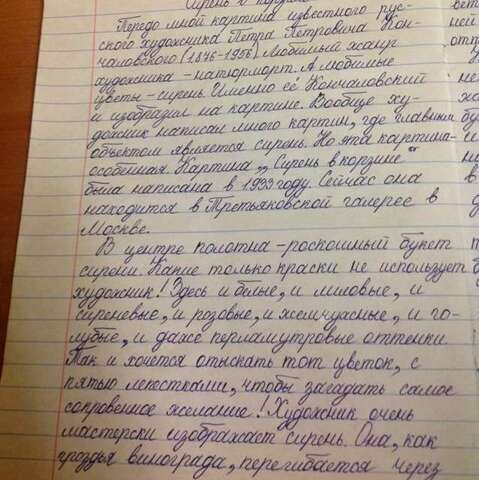 Сирень в корзине
Передо мной картина известного рус-
ского художника Петра Петровича Кон-
чаловского (1876-1956) Любимый жанр
художника - натюрморт. А любимые
цветы - сирень. Именно её Кончаловский
и изобразил на картине. Вообще ху-
дожник написал много картин, где главным
объектом является сирень. Но эта картина-
особенная. Картина „Сирень в корзине"
была написана в 1933 году. Сейчас она
находится в Третьяковской галерее в
Москве.
В центре полотна - роскошный букет
сирени. Какие только краски не использует
художник! Здесь и белые, и лиловые, и
сиреневые, и розовые, и жемчужные, и го-
лубые, и даже перламутровые оттенки
Так и хочется отыскать тот цветок, с
пятью лепестками, чтобы загадать самое
сокровенное желание! Художник очень
мастерски изображает сирень. Она, как
гроздья винограда, перегибается через